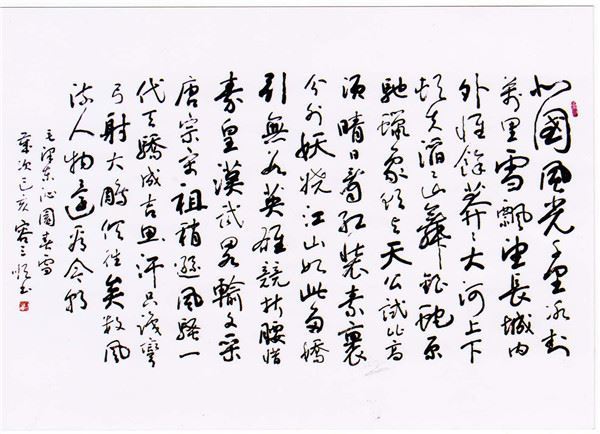 北國風光千里冰封
萬里雪飄望長城内
外惟餘莽々大河上下
頓失滔々山舞銀蛇原
馳蠟象欲與天公試比高
須晴日看紅裝素裹
分外妖嬈江山如此多嬌
引無數英雄競折腰惜
秦皇漢武略輸文采
唐宗宋祖稍遜風騷一
代天驕成吉思汗只識彎
弓射大鵰俱往矣數風
流人物還看今朝
毛澤東沁園春雪
歲次己亥